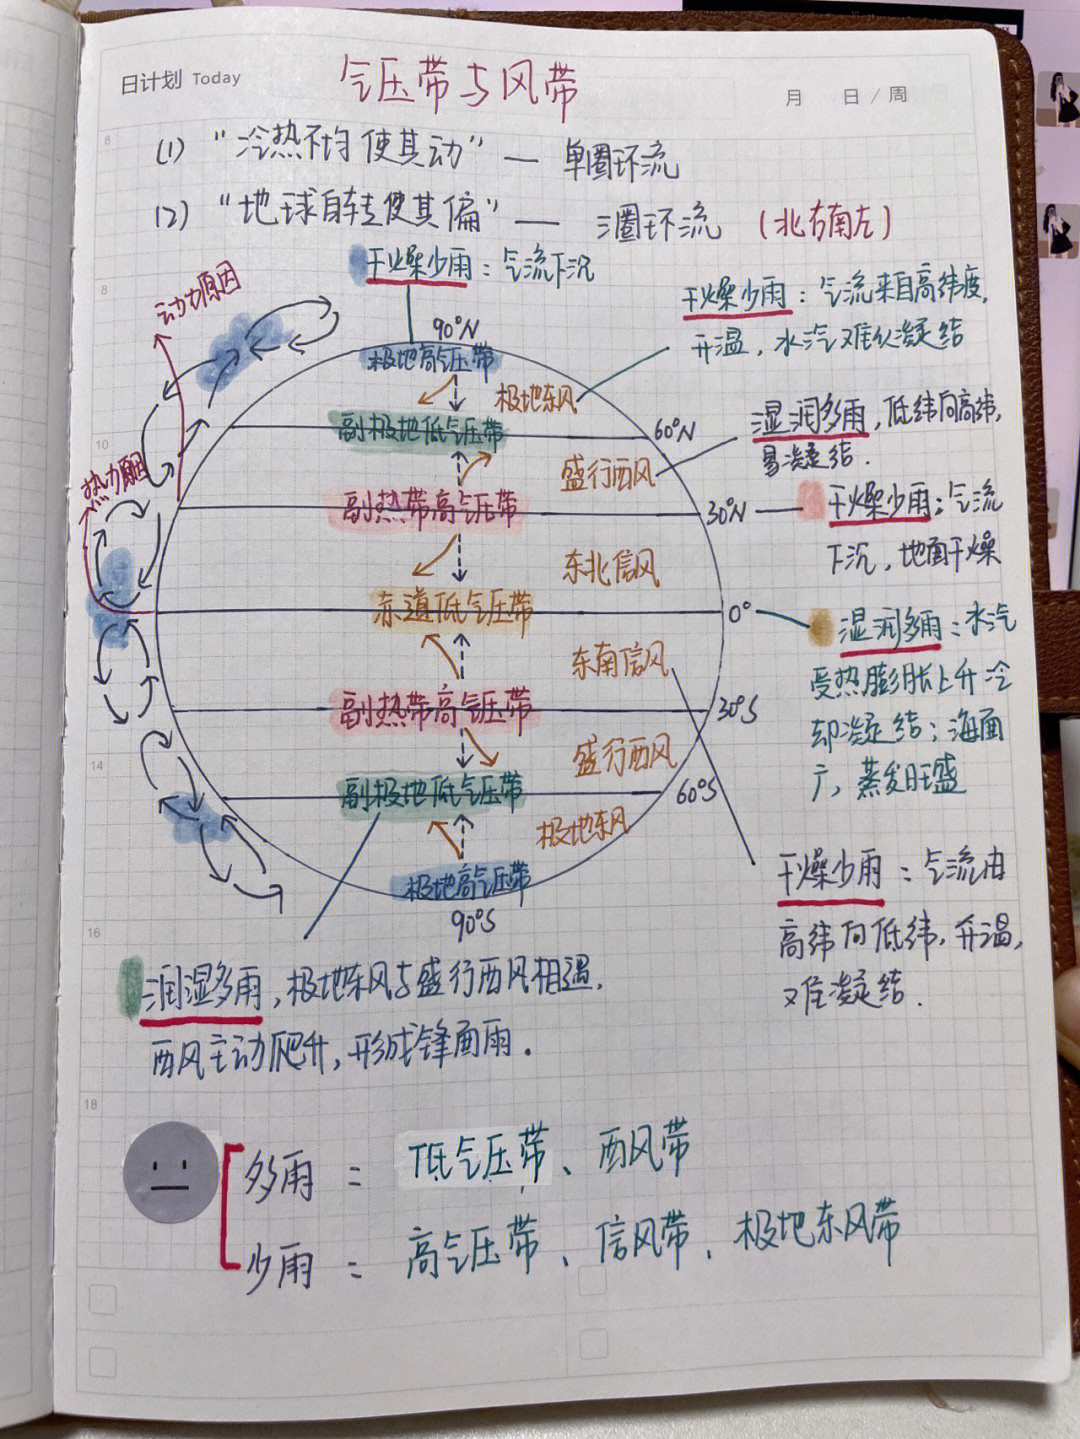 日计划 Today
月 日 / 周
气压带与风带
(1) “冷热不均使其动” — 单圈环流
(2) “地球自转使其偏” — 三圈环流 (北右南左)
干燥少雨：气流下沉
动力原因
干燥少雨：气流来自高纬度,
升温，水汽难以凝结
90°N
极地高气压带
极地东风
副极地低气压带
60°N
湿润多雨，低纬向高纬,
易凝结.
盛行西风
热力原因
副热带高气压带
30°N
干燥少雨：气流
下沉，地面干燥
东北信风
赤道低气压带
0°
湿润多雨：水汽
受热膨胀上升冷
却凝结；海面
广，蒸发旺盛
东南信风
副热带高气压带
30°S
盛行西风
副极地低气压带
60°S
极地东风
极地高气压带
90°S
干燥少雨：气流由
高纬向低纬，升温,
难凝结.
润湿多雨，极地东风与盛行西风相遇.
西风主动爬升，形成锋面雨.
多雨 = 低气压带、西风带
少雨 = 高气压带、信风带、极地东风带
6
8
10
14
16
18